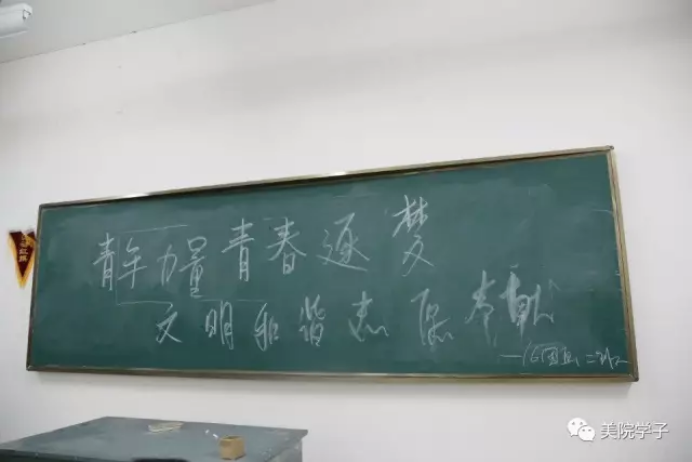 青年力量青春逐梦
文明和谐志愿奉献
一16国画二班
美院学子